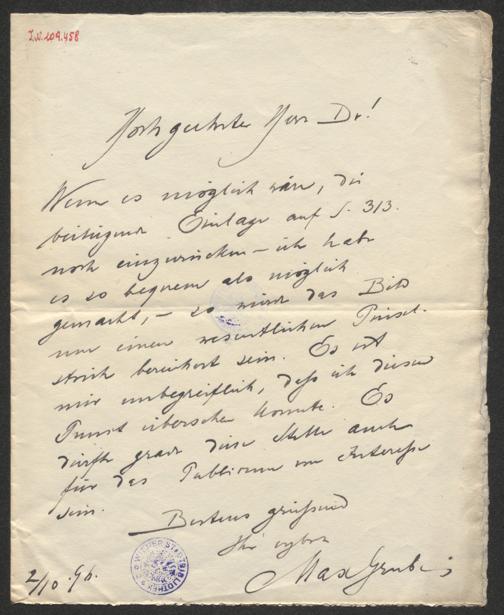 I.N. 109.458
Hochgeehrter Herr Dr!
Wenn es möglich wäre, die
beiliegende Einlage auf S. 313.
noch einzurücken – ich habe
es so bequem als möglich
gemacht, – so würde das Bild
um einen wesentlichen Pinsel-
strich bereichert sein. Es ist
mir unbegreiflich, daß ich diesen
Punct übersehen konnte. Es
dürfte grade diese Stelle auch
für das Publicum von Interesse
sein.
Bestens grüssend
Ihr ergben
Max Grube
2/10.96.
WIENER STADTBIBLIOTHEK